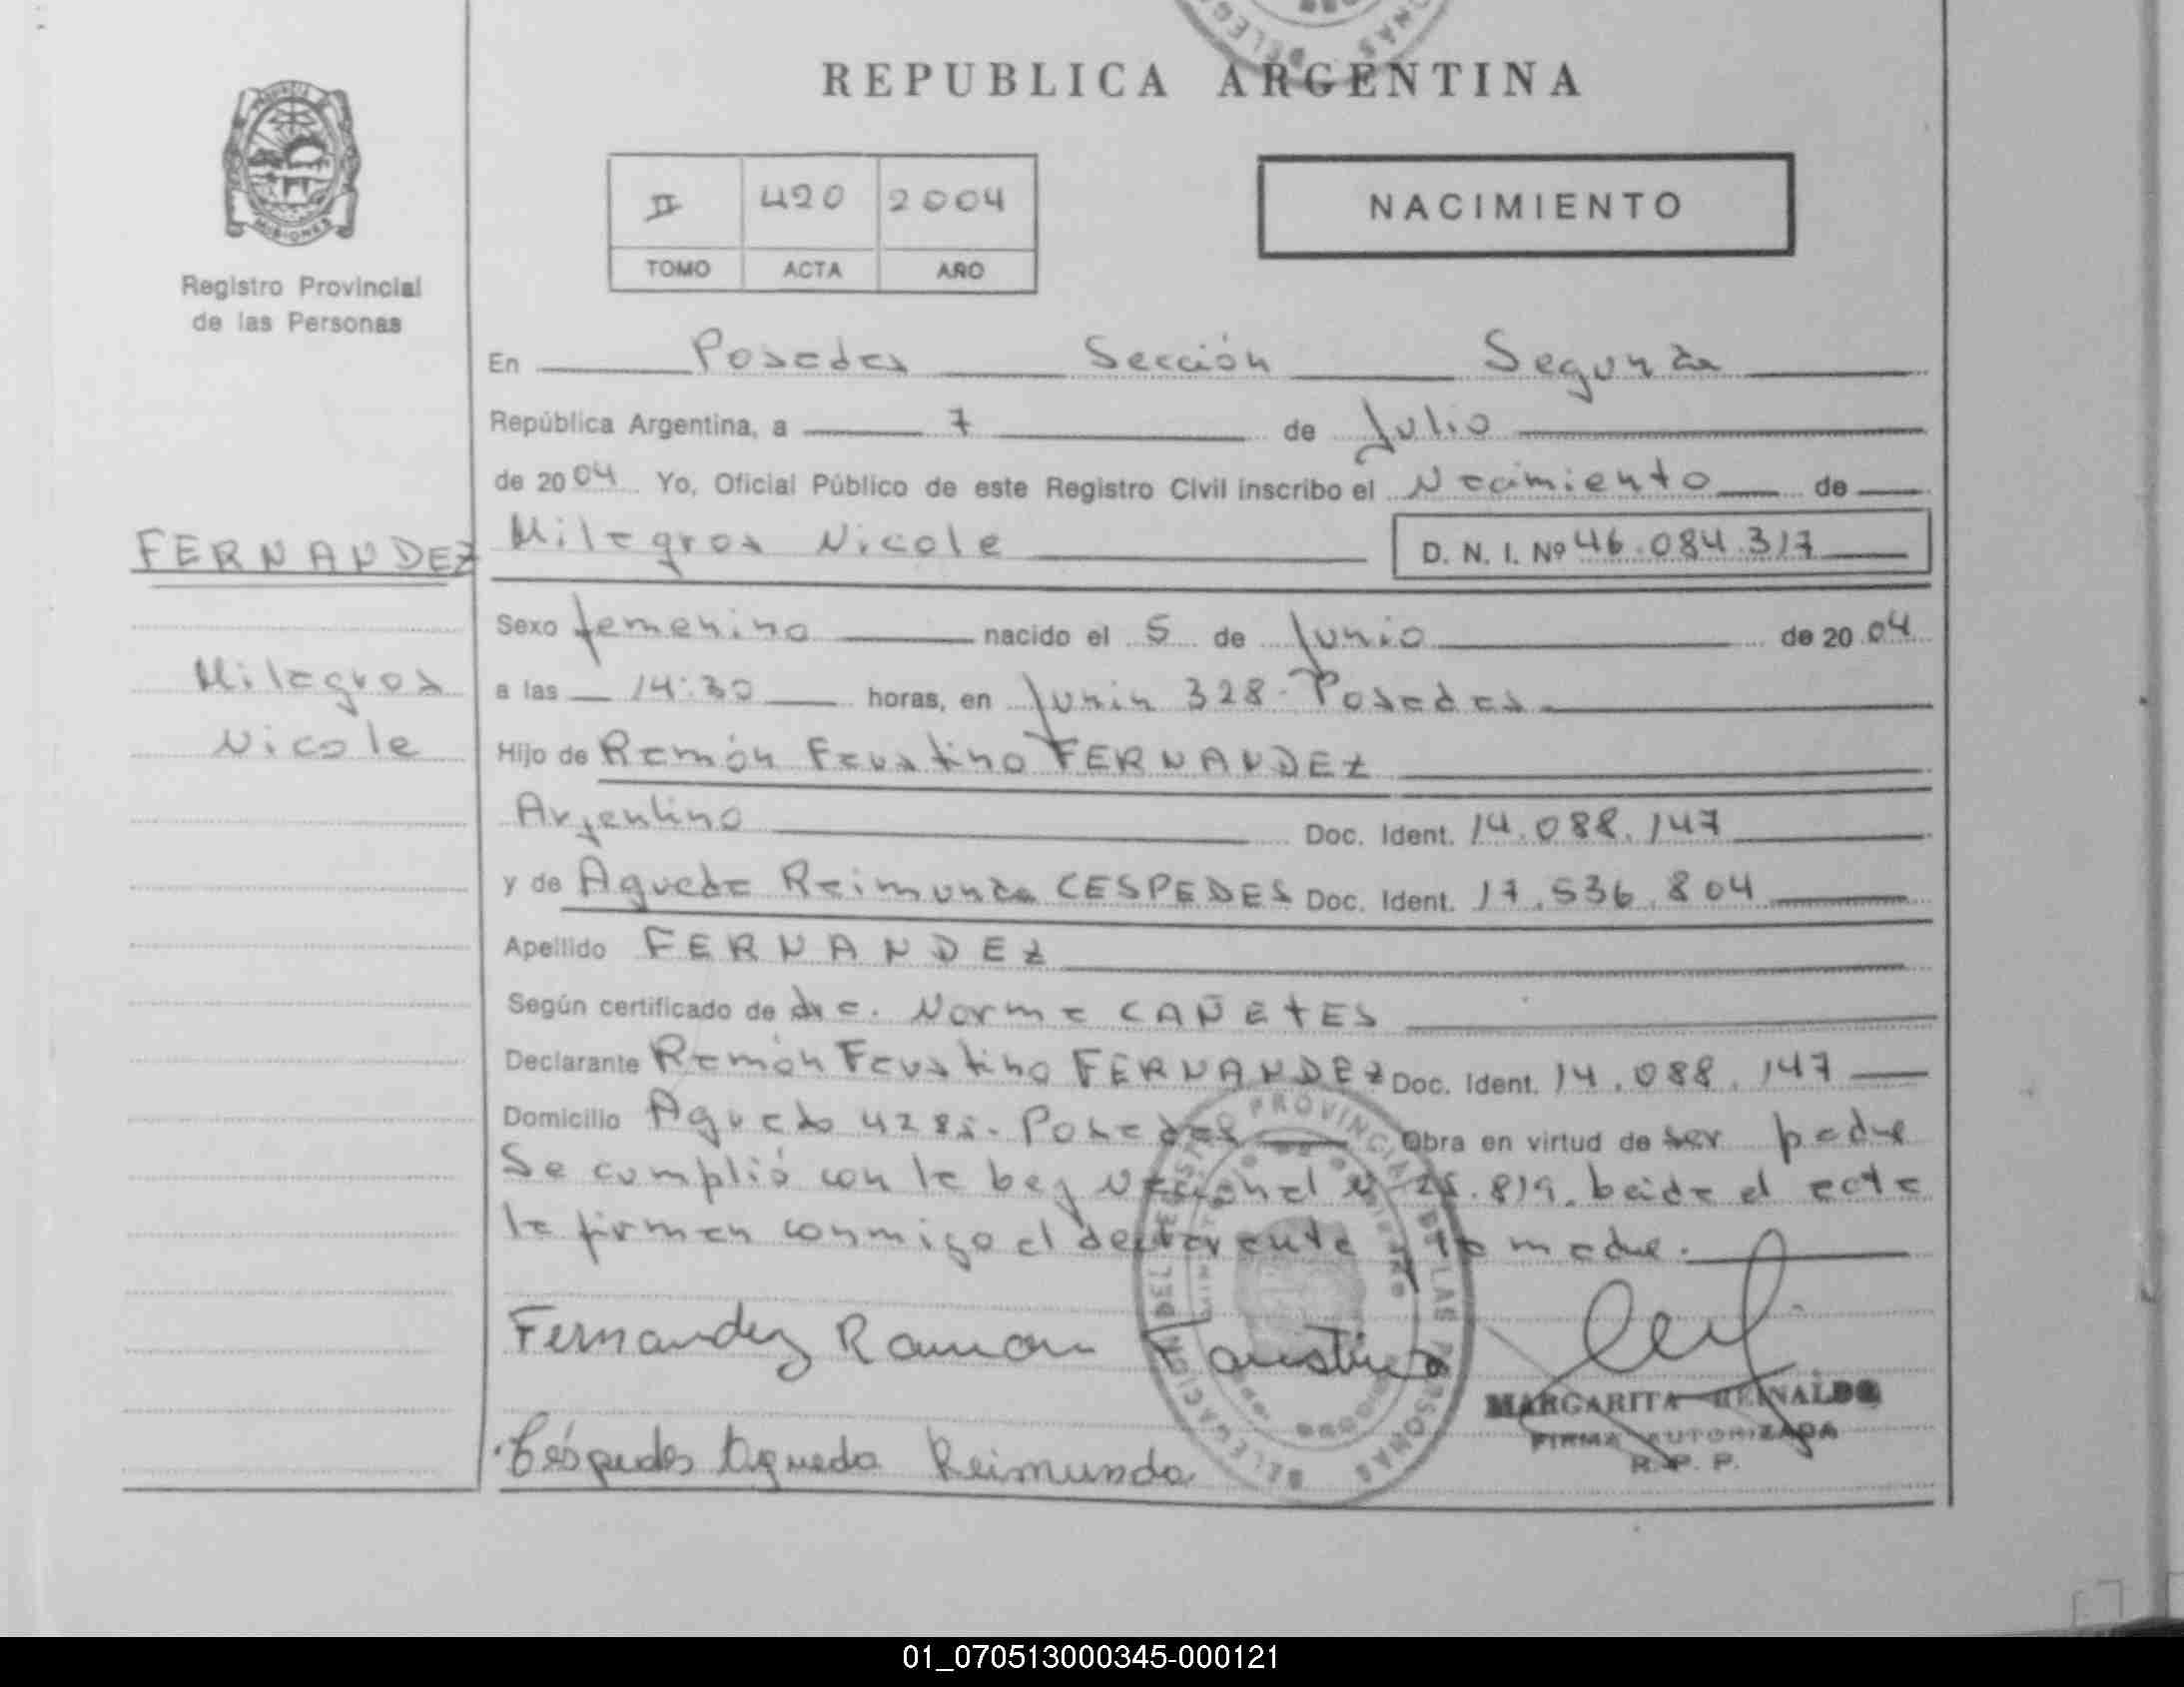 REPUBLICA ARGENTINA
MISIONES
Registro Provincial
de las Personas
II 420 2004
TOMO ACTA AÑO
NACIMIENTO
En Posadas Sección Segunda
República Argentina, a 7 de Julio
de 2004 Yo, Oficial Público de este Registro Civil inscribo el Nacimiento de
FERNANDEZ
Milagros
Nicole
Milagros Nicole D. N. I. Nº 46.084.317
Sexo femenino nacido el 5 de Junio de 2004
a las 14:30 horas, en Junin 328 - Posadas
Hijo de Ramón Faustino FERNANDEZ
Argentino Doc. Ident. 14.088.147
y de Agueda Reimunda CESPEDES Doc. Ident. 17.536.804
Apellido FERNANDEZ
Según certificado de Norma CAÑETES
Declarante Ramón Faustino FERNANDEZ Doc. Ident. 14.088.147
Domicilio Aguado - Posadas Obra en virtud de ser padre
Se cumplió con la Ley Nacional Nº 25.819. Leida el acta
la firman conmigo el declarante y la madre.
Fernandez Ramon Faustino
Céspedes Agueda Reimunda
MARGARITA REINALDO
FIRMA AUTORIZADA
R. P. P.
DELEGACION DEL REGISTRO PROVINCIAL DE LAS PERSONAS
01_070513000345-000121